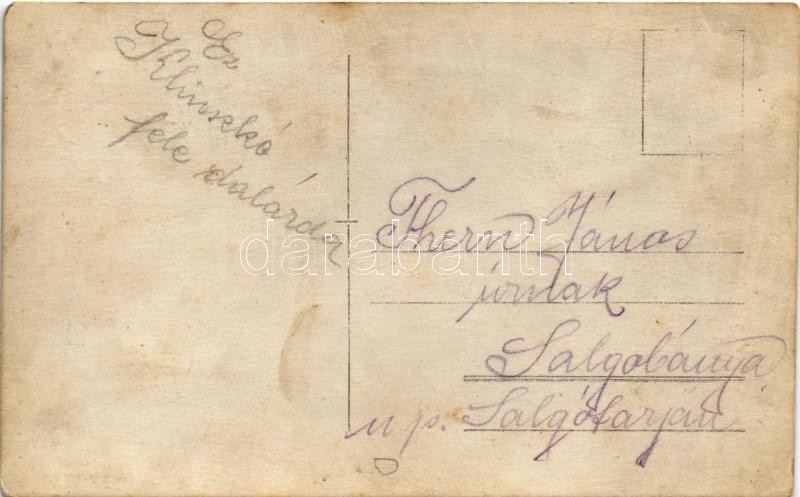 Ez
Klinszkó
féle dalárda
Thern János
úrnak
Salgobánya
u p. Salgótarján
darabanth